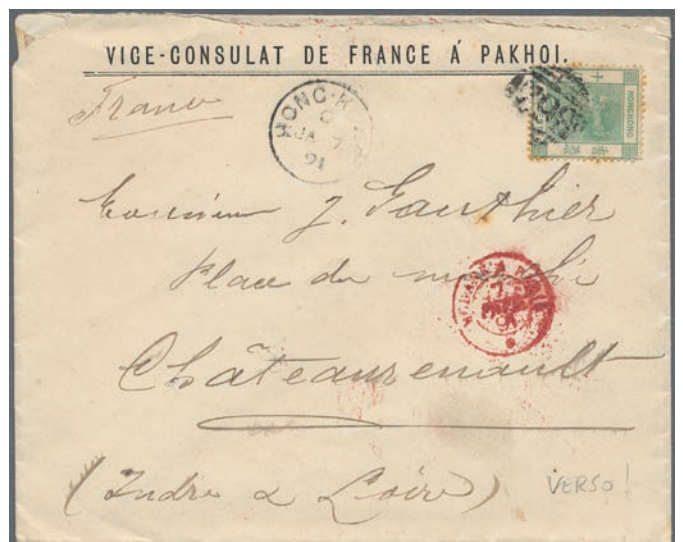 VICE-CONSULAT DE FRANCE Á PAKHOI.
France
HONG-K
C
JA 7
91
HONGKONG
Monsieur J. Gauthier
Place du marché
Châteaurenault
(Indre & Loire)
VERSO!